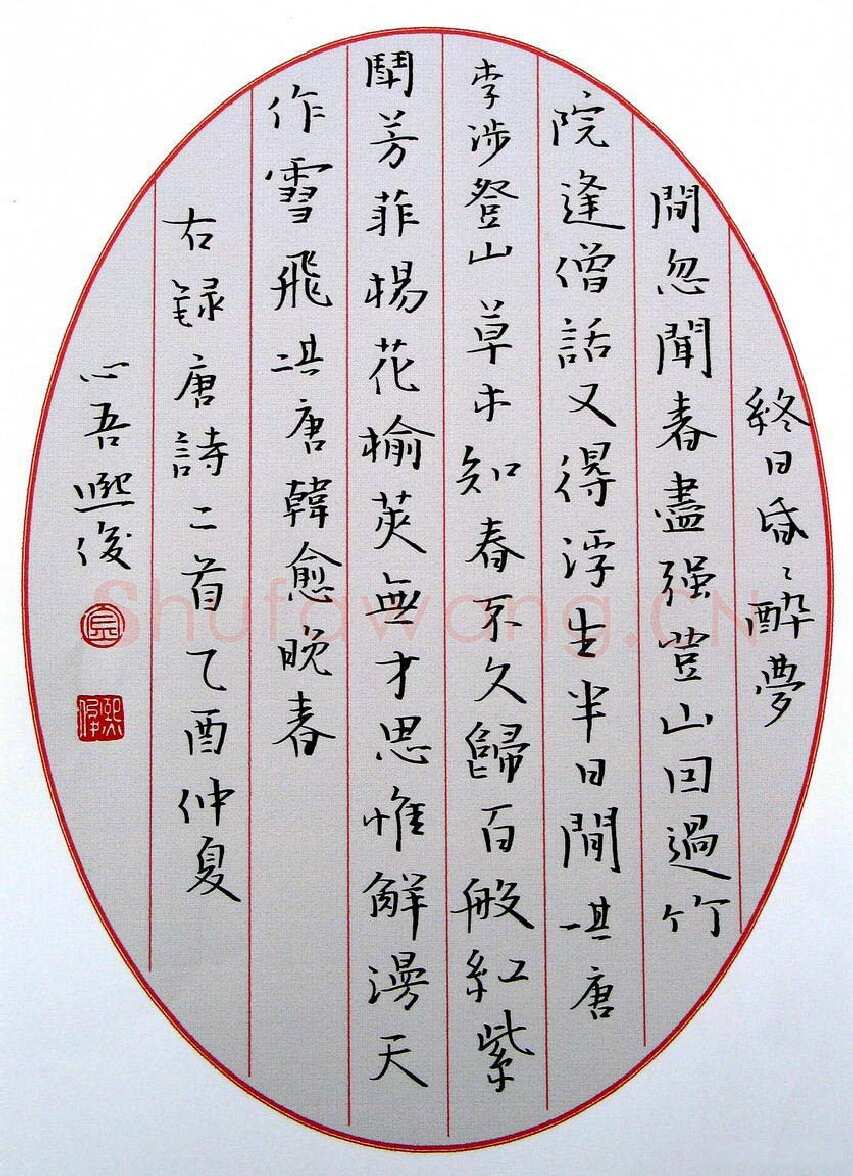 終日昏〻醉夢
間忽聞春盡强登山回過竹
院逢僧話又得浮生半日間其一唐
李涉登山草木知春不久歸百般紅紫
鬪芳菲楊花榆莢無才思惟解漫天
作雪飛其二唐韓愈晚春
右録唐詩二首乙酉仲夏
心吾熙俊
熙俊
Shufawang.CN